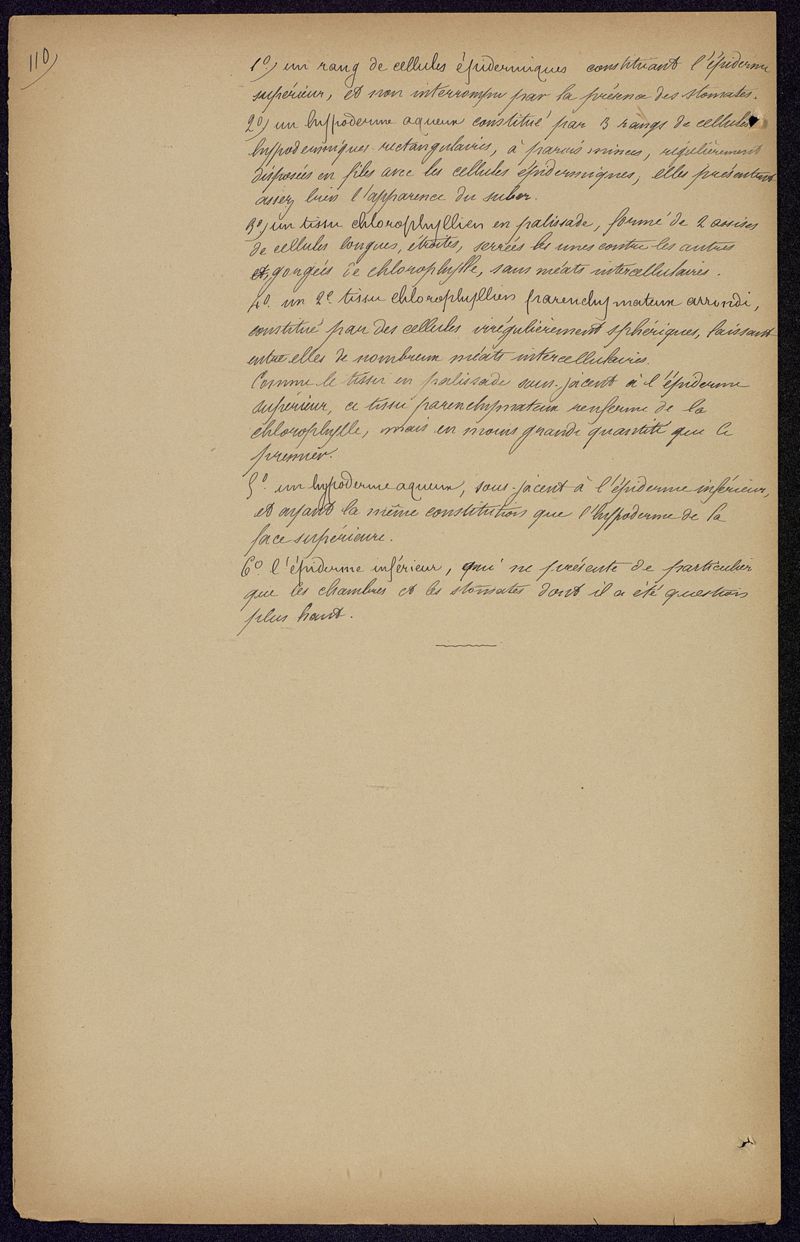 110)
1º) un rang de cellules épidermiques constituant l'épiderme
supérieur, et non interrompu par la présence des stomates.
2º) un hypoderme aqueux constitué par 3 rangs de cellules
hypodermiques rectangulaires, à parois minces, régulièrement
disposées en files avec les cellules épidermiques, elles présentent
assez bien l'apparence du suber.
3º) un tissu chlorophyllien en palissade, formé de 2 assises
de cellules longues, étroites, serrées les unes contre les autres
et gorgées de chlorophylle, sans méats intercellulaires.
4º. un 2e tissu chlorophyllien parenchymateux arrondi,
constitué par des cellules irrégulièrement sphériques, laissant
entre elles de nombreux méats intercellulaires.
Comme le tissu en palissade sous-jacent à l'épiderme
supérieur, ce tissu parenchymateux renferme de la
chlorophylle, mais en moins grande quantité que le
premier.
5º. un hypoderme aqueux, sous-jacent à l'épiderme inférieur,
et ayant la même constitution que l'hypoderme de la
face supérieure.
6º l'épiderme inférieur, qui ne présente de particulier
que les chambres et les stomates dont il a été question
plus haut.